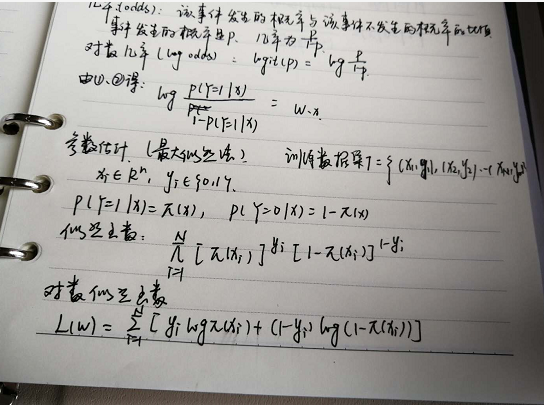 几率(odds): 该事件发生的概率与该事件不发生的概率的比值
事件发生的概率是p. 几率为 p/1-p.
对数几率 (log odds): logit(p) = log p/1-p.
由①、②得: log P(Y=1|x)/1-P(Y=1|x) = w·x.
参数估计 (最大似然法) 训练数据集T={(x₁,y₁),(x₂,y₂)...(x_N,y_N)}
xᵢ∈Rⁿ, yᵢ∈{0,1}.
P(Y=1|x)=π(x), P(Y=0|x)=1-π(x)
似然函数: ∏ᵢ₌₁ᴺ [π(xᵢ)]^yᵢ [1-π(xᵢ)]^1-yᵢ
对数似然函数
L(w) = ∑ᵢ₌₁ᴺ [yᵢ logπ(xᵢ)+(1-yᵢ) log(1-π(xᵢ))]